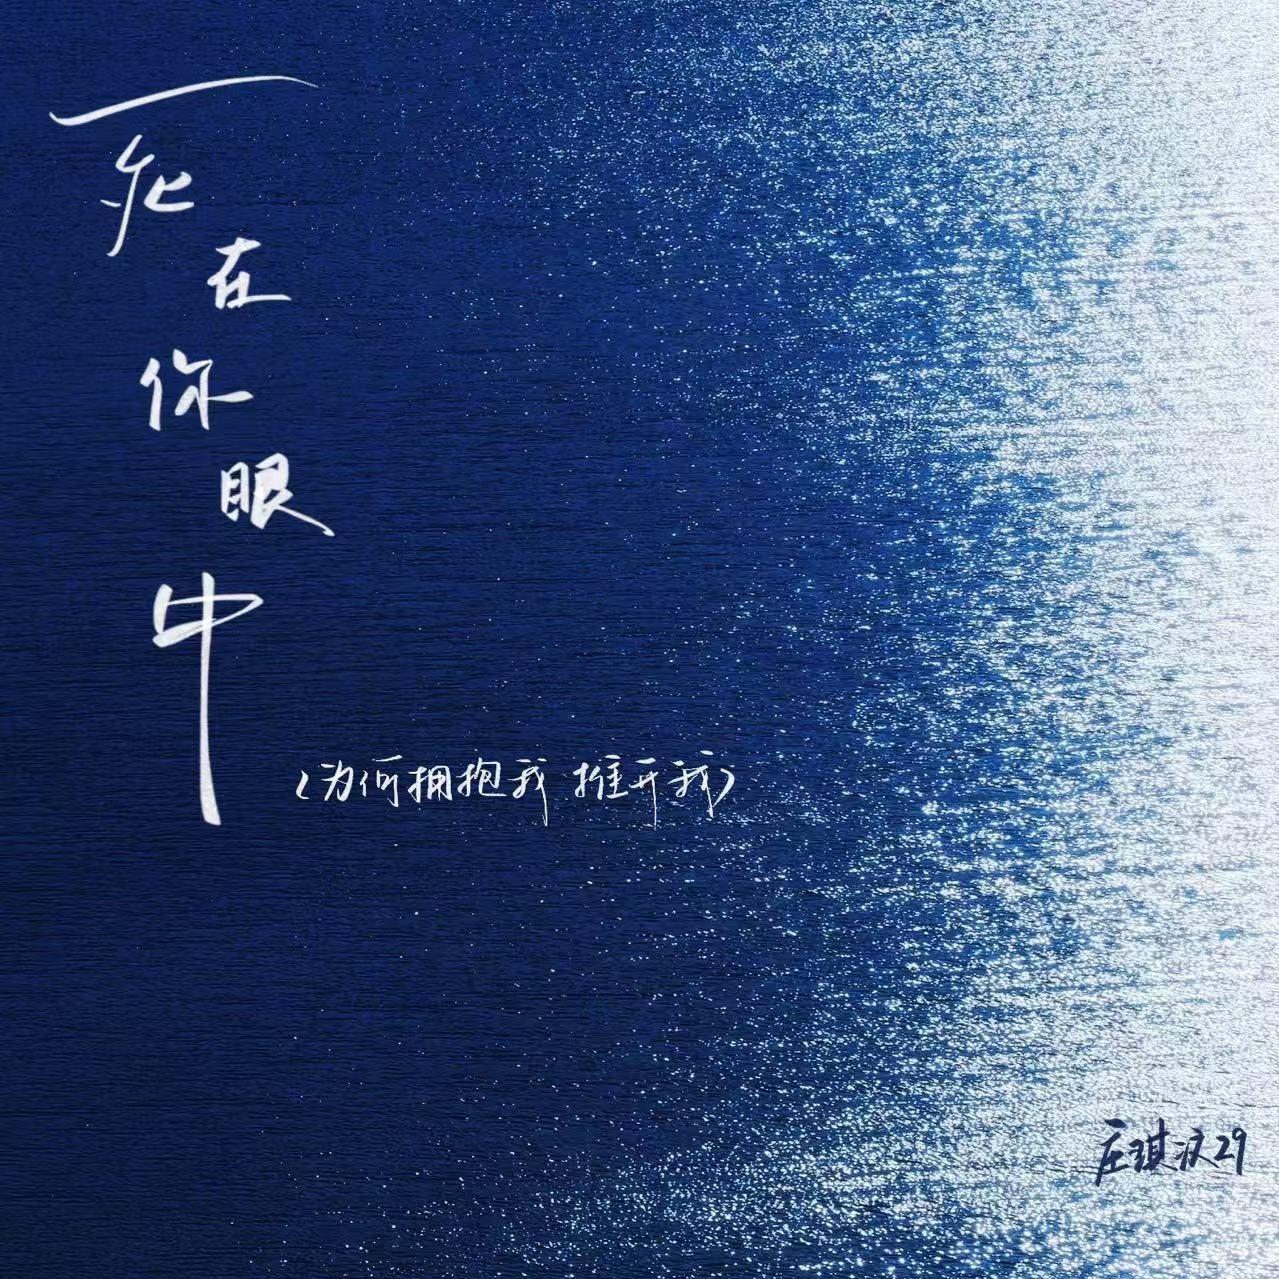 死在你眼中
(为何拥抱我 推开我)
庄淇汶29